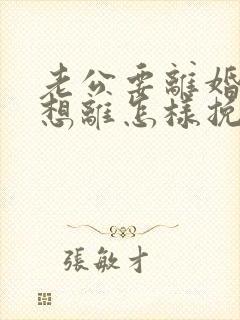 老公要離婚
想離怎樣挽
張敏才